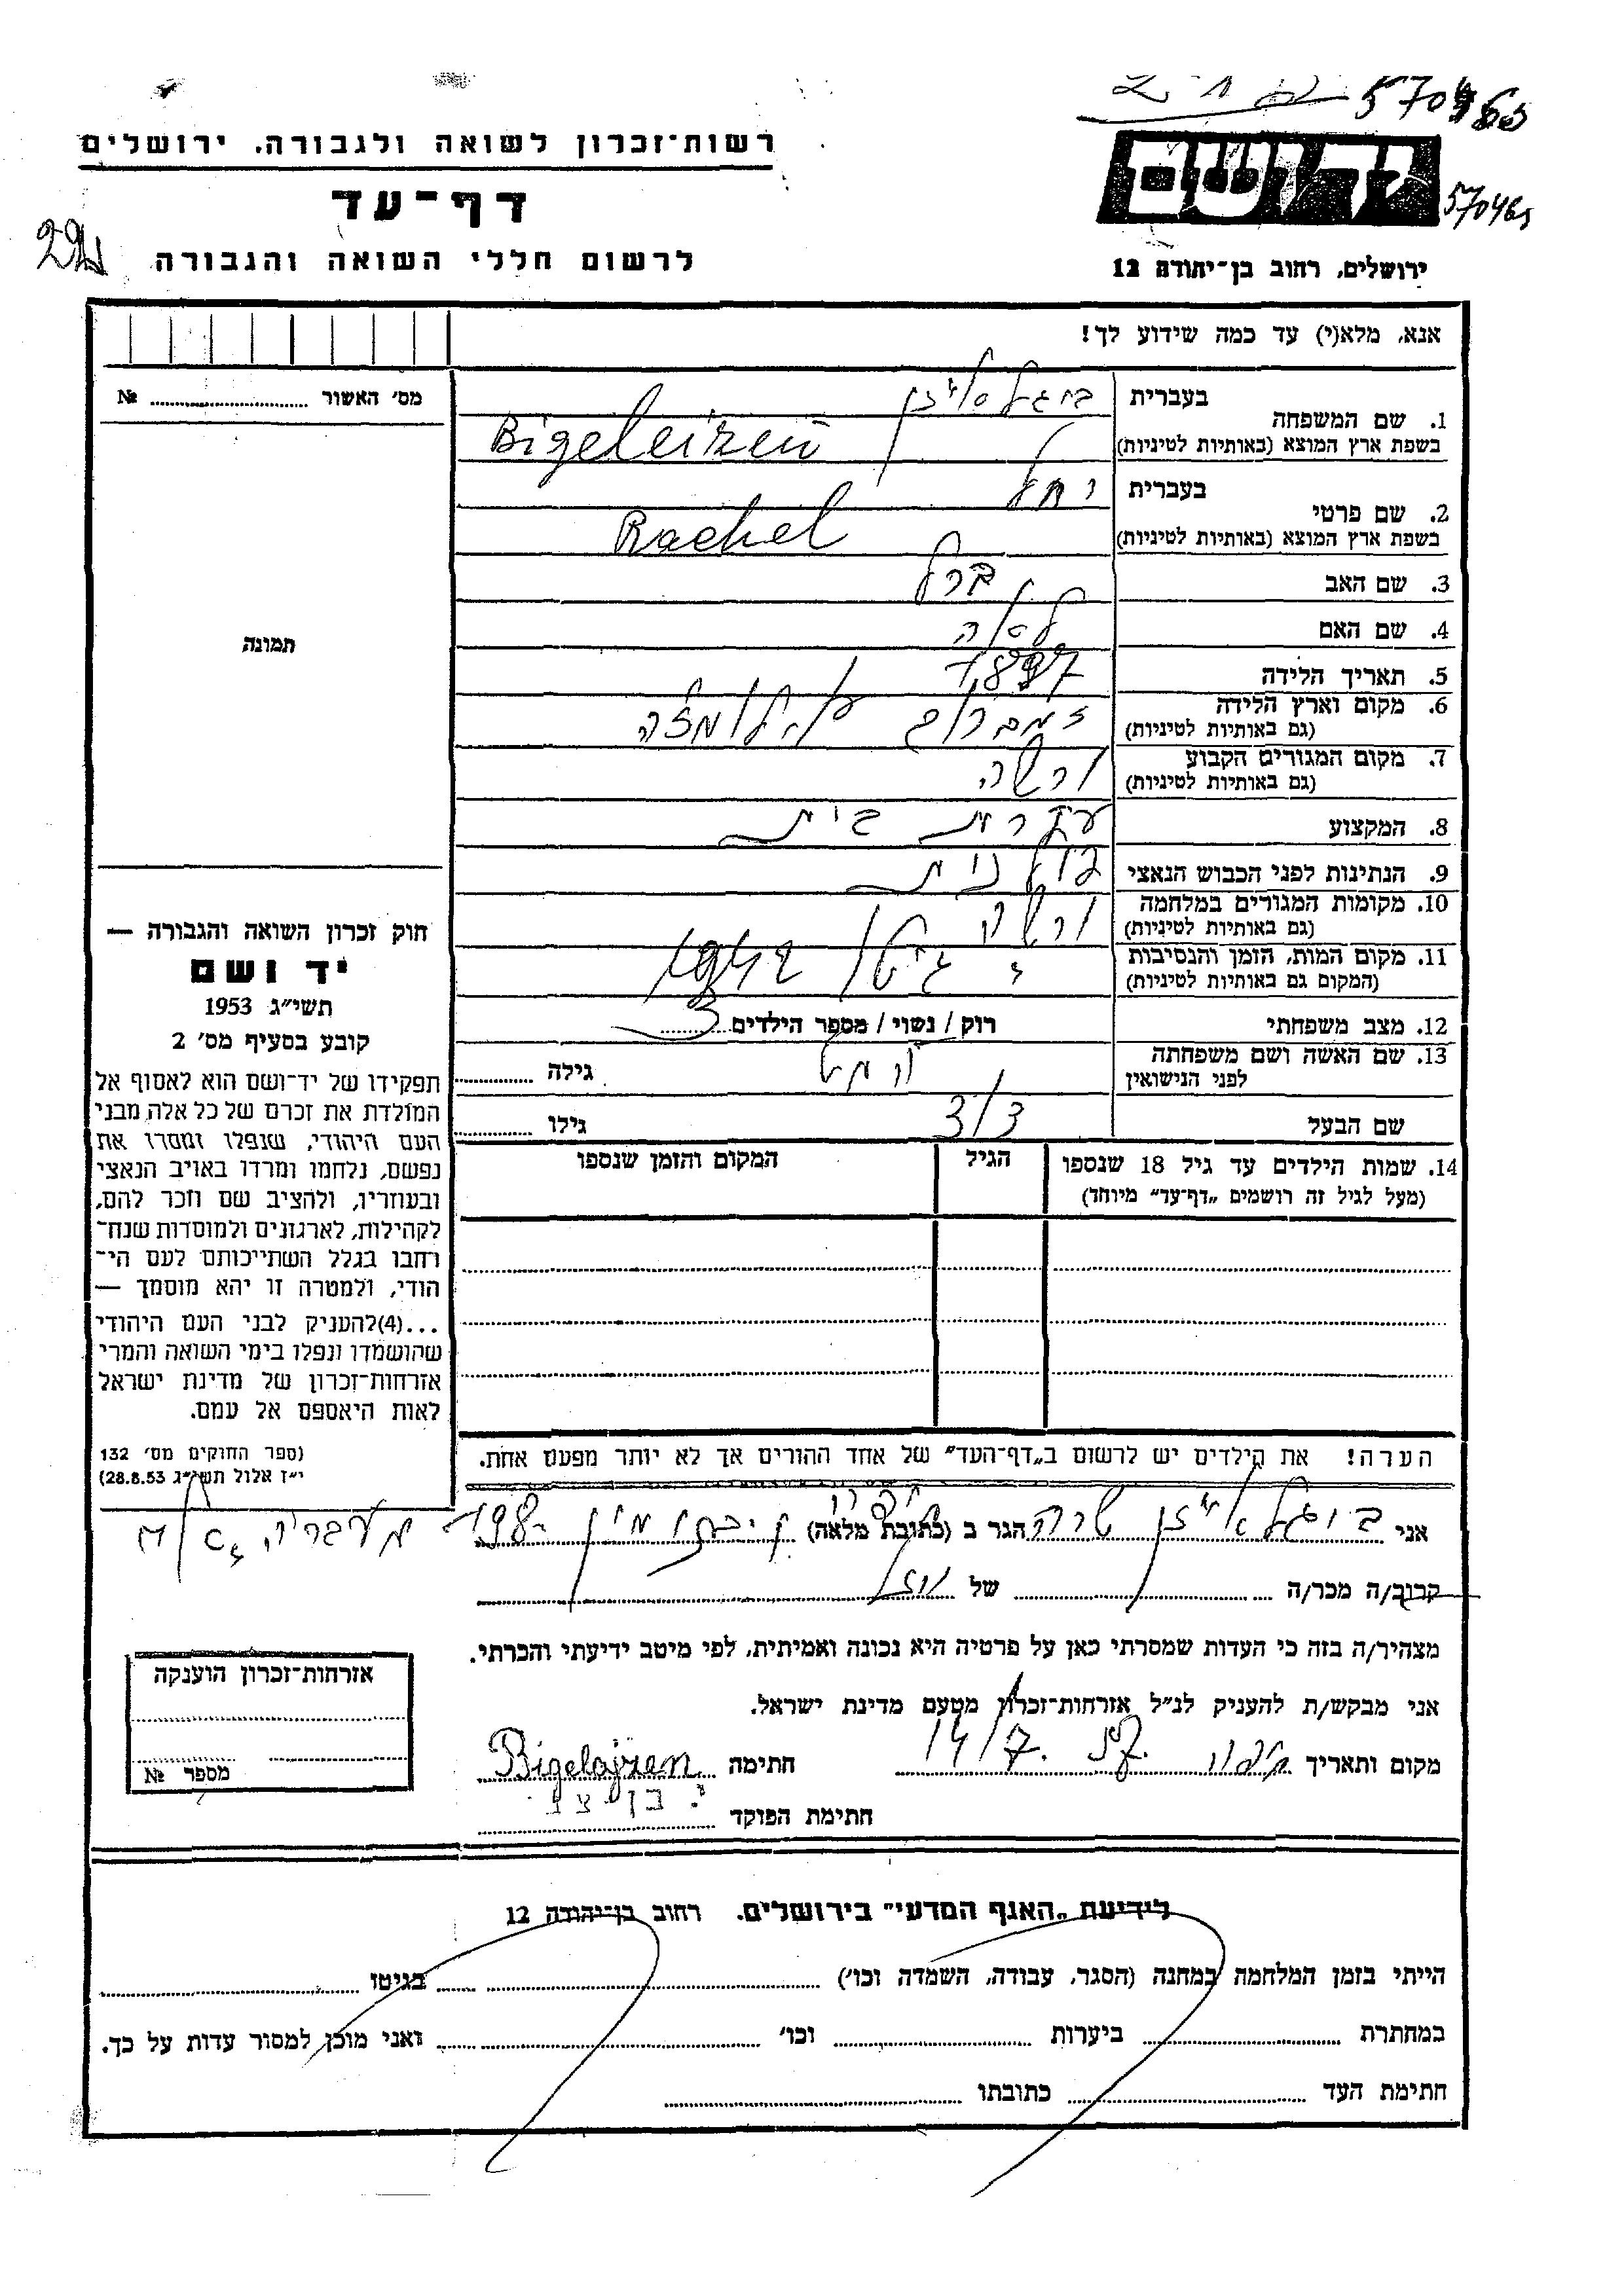 570463
רשות־זכרון לשואה ולגבורה. ירושלים
דף־עד
לרשום חללי השואה והגבורה
יד ושם
570463
ירושלים, רחוב בן־יהודה 12
אנא, מלא(י) עד כמה שידוע לך!
מס׳ האשור № ........
1. שם המשפחה
בעברית ביגלאייזן
בשפת ארץ המוצא (באותיות לטיניות) Bigeleizen
2. שם פרטי
בעברית רחל
בשפת ארץ המוצא (באותיות לטיניות) Rachel
3. שם האב ברל
4. שם האם
5. תאריך הלידה 1897
6. מקום וארץ הלידה
(גם באותיות לטיניות) זמברוב לומזה
7. מקום המגורים הקבוע
(גם באותיות לטיניות) ורשה
8. המקצוע עקרת בית
9. הנתינות לפני הכבוש הנאצי פולנית
10. מקומות המגורים במלחמה
(גם באותיות לטיניות) ורשה
11. מקום המות, הזמן והנסיבות
(המקום גם באותיות לטיניות) גיטו 1942
12. מצב משפחתי רוק / נשוי / מספר הילדים 3
13. שם האשה ושם משפחתה
לפני הנישואין גילה ........
שם הבעל גילו ........
14. שמות הילדים עד גיל 18 שנספו
(מעל לגיל זה רושמים „דף־עד״ מיוחד)
הגיל
המקום והזמן שנספו
הערה! את הילדים יש לרשום ב„דף־העד״ של אחד ההורים אך לא יותר מפעם אחת.
תמונה
חוק זכרון השואה והגבורה —
יד ושם
תשי״ג 1953
קובע בסעיף מס׳ 2
תפקידו של יד־ושם הוא לאסוף אל
המולדת את זכרם של כל אלה מבני
העם היהודי, שנפלו ומסרו את
נפשם, נלחמו ומרדו באויב הנאצי
ובעוזריו, ולהציב שם וזכר להם,
לקהילות, לארגונים ולמוסדות שנח־
רחבו בגלל השתייכותם לעם הי־
הודי, ולמטרה זו יהא מוסמך —
...(4)להעניק לבני העם היהודי
שהושמדו ונפלו בימי השואה והמרי
אזרחות־זכרון של מדינת ישראל
לאות היאספם אל עמם.
(ספר החוקים מס׳ 132
י״ז אלול תשי״ג 28.8.53)
אני ביגלאייזן שרה הגר ב (כתובת מלאה)
קרוב/ה מכר/ה ........ של
מצהיר/ה בזה כי העדות שמסרתי כאן על פרטיה היא נכונה ואמיתית, לפי מיטב ידיעתי והכרתי.
אני מבקש/ת להעניק לנ״ל אזרחות־זכרון מטעם מדינת ישראל.
מקום ותאריך חיפה 14/7. 57. חתימה Bigelajzen
חתימת הפוקד י. בן צבי
אזרחות־זכרון הוענקה
מספר №
לידיעת „האגף המדעי״ בירושלים. רחוב בן־יהודה 12
הייתי בזמן המלחמה במחנה (הסגר, עבודה, השמדה וכו׳) ........ בגיטו ........
במחתרת ........ ביערות ........ וכו׳ ........ ואני מוכן למסור עדות על כך.
חתימת העד ........ כתובתו ........